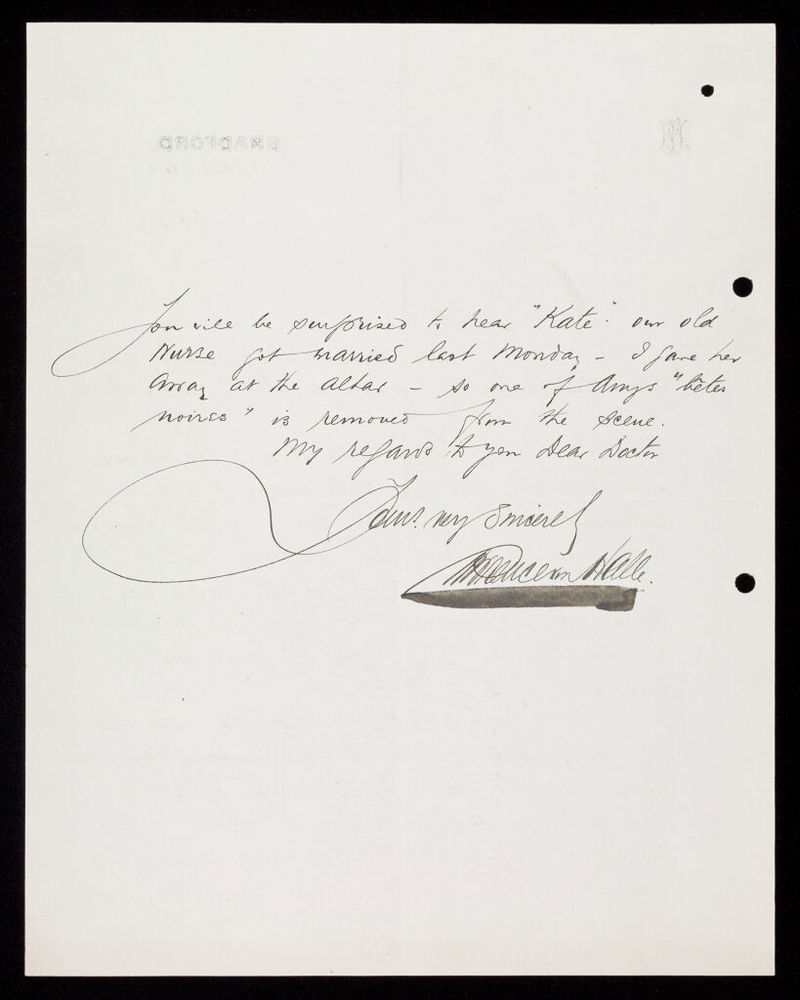 BRADFORD
You will be surprised to hear "Kate" our old
Nurse got married last Monday - I gave her
away at the altar - so one of Amys "bêtes
noires" is removed from the scene.
My regards to you Dear Doctor
Yours very Sincerely
Halle.